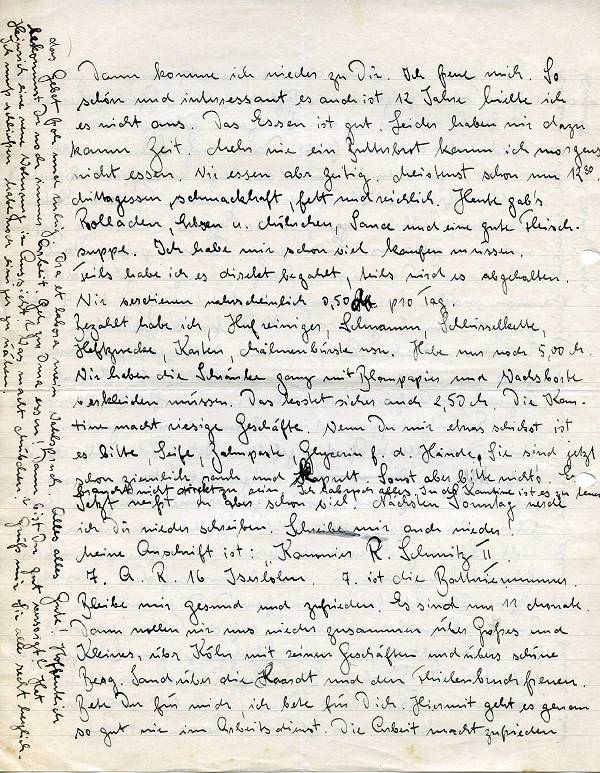 Dann komme ich wieder zu Dir. Ich freue mich. So
schön und interessant es auch ist 12 Jahre hielte ich
es nicht aus. Das Essen ist gut. Leider haben wir dazu
kaum Zeit. Mehr wie ein Butterbrot kann ich morgens
nicht essen. Wir essen aber zeitig. Meistens schon um 12³⁰
Mittagessen, schmackhaft, fett und reichlich. Heute gab's
Rolladen, Erbsen u. Möhrchen, Sauce und eine gute Fleisch-
suppe. Ich habe mir schon viel kaufen müssen.
Teils habe ich es direkt bezahlt, teils wird es abgehalten.
Wir verdienen wahrscheinlich 0,50 M pro Tag.
Bezahlt habe ich, Hufreiniger, Schwamm, Schlüsselkette,
Heftzwecke, Kasten, Mähnenbürste usw. Habe nur noch 5,00 M.
Wir haben die Schränke ganz mit Blaupapier und Wachsborte
verkleiden müssen. Das kostet sicher auch 2,50 M. Die Kan-
tine macht riesige Geschäfte. Wenn Du mir etwas schickst ist
es bitte, Seife, Zahnpaste, Glyzerin f. d. Hände. Sie sind jetzt
schon ziemlich rauh und kaputt. Sonst aber bitte nichts! Es
braucht nicht direkt zu sein. Ich hab noch alles. In der Kantine ist es zu teuer
Jetzt weißt Du aber schon viel. Nächsten Sonntag werde
ich Dir wieder schreiben. Schreibe mir auch wieder!
Meine Anschrift ist: „Kanonier R. Schmitz II.
7. A. R. 16 Iserlohn. 7. ist die Batterienummer.
Bleibe mir gesund und zufrieden. Es sind nur 11 Monate.
Dann wollen wir uns wieder zusammen über Großes und
Kleines, über Köln mit seinen Geschäften und übers schöne
Berg. Land über die Haardt und den Thielenbruch freuen.
Bete Du für mich, ich bete für Dich. Hiermit geht es genau
so gut wie im Arbeitsdienst. Die Arbeit macht zufrieden
das Gebet froh und ruhig. Ora et labora mein Wahlspruch. Alles alles Gute! Hoffentlich
bekommst Du noch immer Arbeit. Geh zu Oma essen! Dann bist Du gut versorgt! Hat
Heinrich eine neue Wohnung in Aussicht? Was macht Mütchen? Grüß mir Sie alle recht herzlich.
Ich muß schließen habe noch einiges zu nähen.